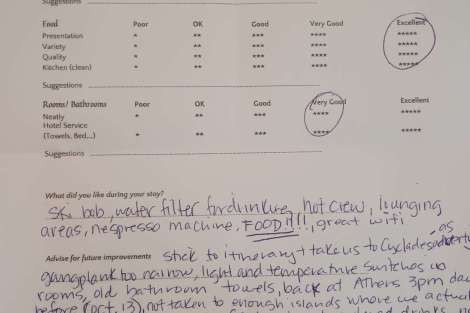 Suggestions
Food Poor OK Good Very Good Excellent
Presentation * ** *** **** *****
Variety * ** *** **** *****
Quality * ** *** **** *****
Kitchen (clean) * ** *** **** *****
Suggestions
Rooms/ Bathrooms Poor OK Good Very Good Excellent
Neatly * ** *** **** *****
Hotel Service
(Towels, Bed,...) * ** *** **** *****
Suggestions
What did you like during your stay?
bob, water filter for drinking, hot crew, lounging
areas, nespresso machine, FOOD!!!!, great wifi
as
Advise for future improvements stick to itinerary + take us to Cyclades
gangplank too narrow, light and temperature switches
rooms, old bathroom towels, back at Athens 3pm day
before (Oct. 13), not taken to enough islands where we actual
drinks